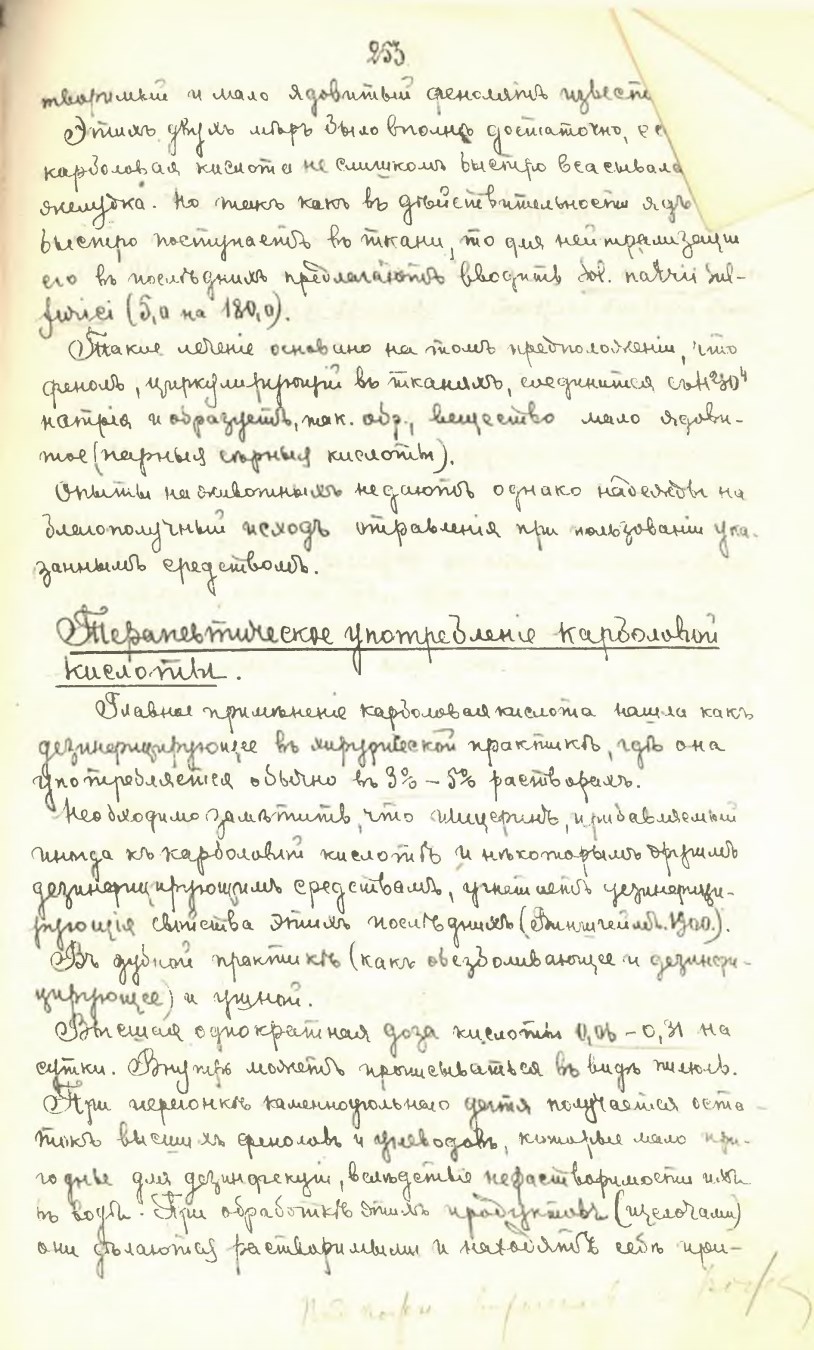 253
творимый и мало ядовитый фенолятъ извест
Этихъ двухъ мѣръ было вполнѣ достаточно, ес
карболовая кислота не слишкомъ быстро всасывала
желудка. Но такъ какъ въ дѣйствительности ядъ
быстро поступаетъ въ ткани, то для нейтрализаціи
его въ послѣднихъ предлагаютъ вводить Sol. natrii sul-
furici (5,0 на 180,0).
Такое леченіе основано на томъ предположеніи, что
фенолъ, циркулирующій въ тканяхъ, соединится съ H²SO⁴
натрія и образуетъ, так. обр., вещество мало ядови-
тое (парныя сѣрныя кислоты).
Опыты на животныхъ не даютъ однако надежды на
благополучный исходъ отравленія при пользованіи ука-
заннымъ средствомъ.
Терапевтическое употребленіе карболовой
кислоты.
Главное примѣненіе карболовая кислота нашла какъ
дезинфицирующее въ хирургической практикѣ, гдѣ она
употребляется обычно въ 3% – 5% растворахъ.
Необходимо замѣтить, что глицеринъ, прибавляемый
иногда къ карболовой кислотѣ и нѣкоторымъ другимъ
дезинфицирующимъ средствамъ, угнетаетъ дезинфици-
рующія свойства этихъ послѣднихъ (1900.).
Въ зубной практикѣ (какъ обезболивающее и дезинфи-
цирующее) и ушной.
Высшая однократная доза кислоты 0,06 – 0,31 на
сутки. Внутрь можетъ прописываться въ видѣ пилюль.
При перегонкѣ каменноугольнаго дегтя получается оста-
токъ высшихъ феноловъ и углеводовъ, которые мало при-
годные для дезинфекціи, вслѣдствіе нерастворимости ихъ
въ водѣ. При обработкѣ этихъ продуктовъ (щелочами)
они дѣлаются растворимыми и находятъ себѣ при-